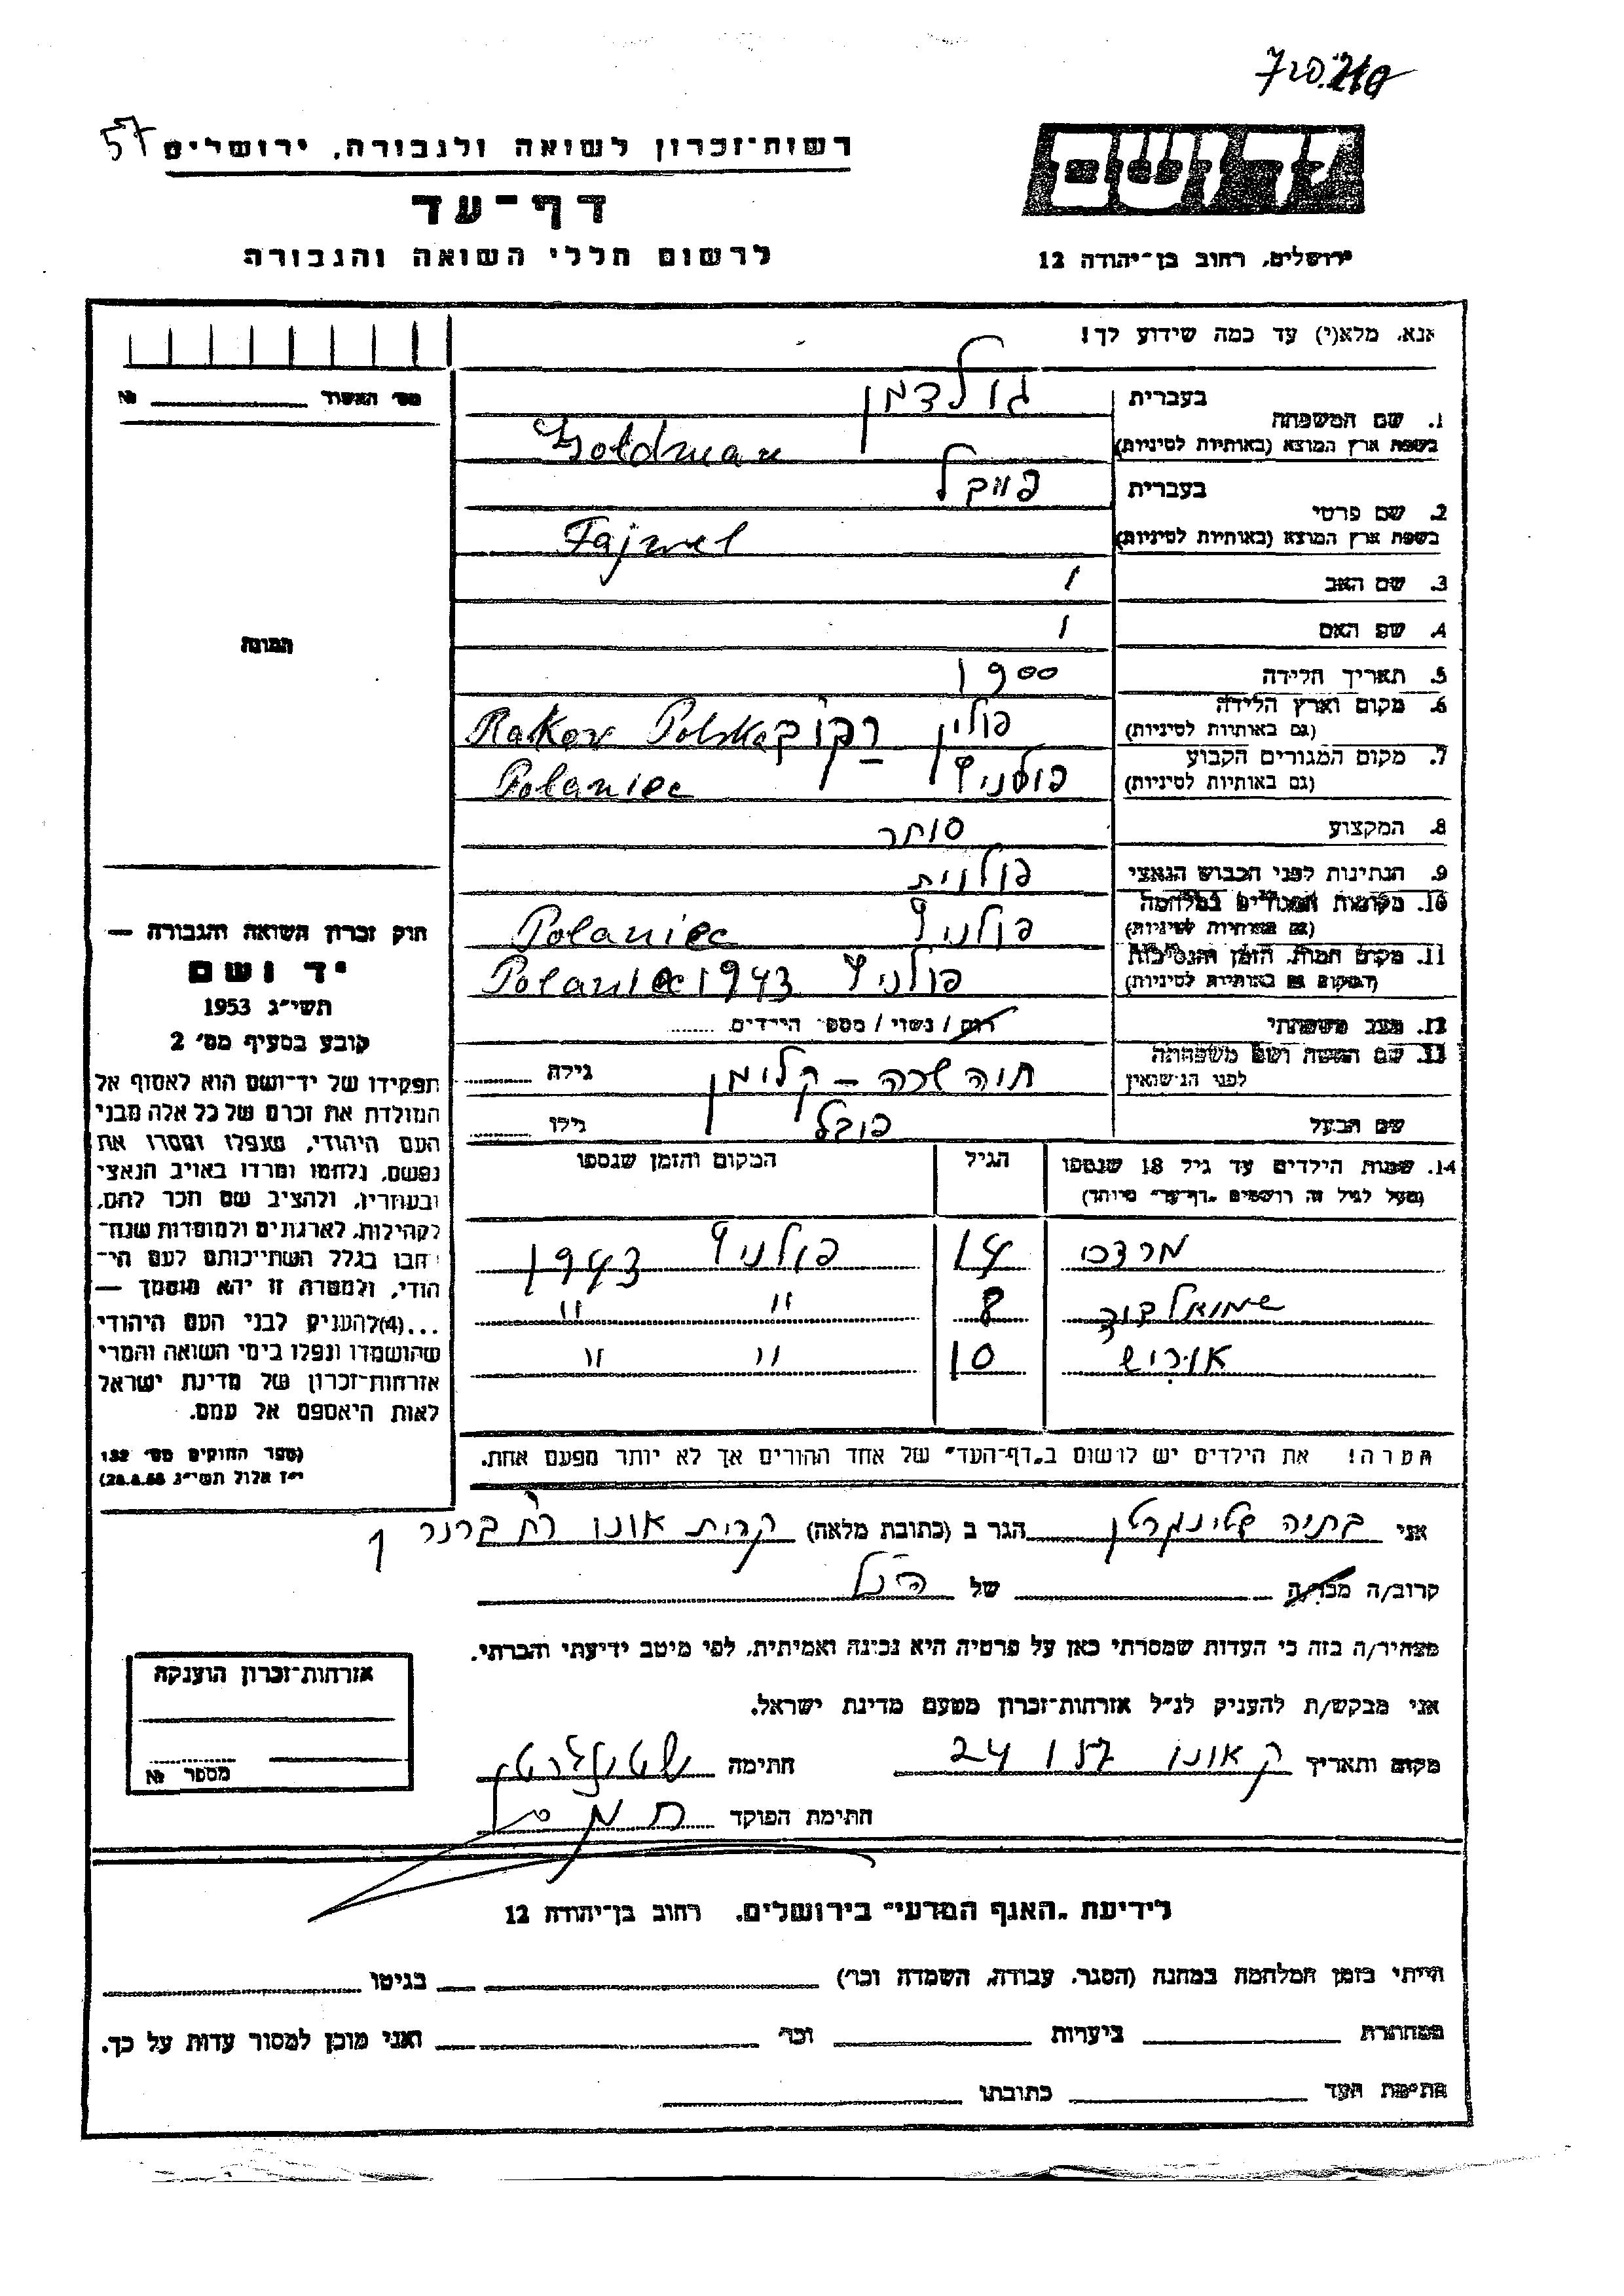 57
רשות־זכרון לשואה ולגבורה, ירושלים
דף־עד
לרשום חללי השואה והגבורה
ירושלים, רחוב בן־יהודה 12
אנא, מלא(י) עד כמה שידוע לך!
מס׳ האשור № 
1. שם המשפחה
בעברית גולדמן
בשפת ארץ המוצא (באותיות לטיניות) Goldman
2. שם פרטי
בעברית פייבל
בשפת ארץ המוצא (באותיות לטיניות) Fajwel
3. שם האב
4. שם האם
5. תאריך הלידה 1900
6. מקום וארץ הלידה (גם באותיות לטיניות) פולין רקוב Rakov Polska
7. מקום המגורים הקבוע (גם באותיות לטיניות) פולניץ Polaniec
8. המקצוע סוחר
9. הנתינות לפני הכבוש הנאצי פולנית
10. מקומות המגורים במלחמה (גם באותיות לטיניות) פולניץ Polaniec
11. מקום המות, הזמן והנסיבות (המקום גם באותיות לטיניות) פולניץ 1943 Polaniec
12. מצב משפחתי רוק / נשוי / מספר הילדים
13. שם האשה ושם משפחתה לפני הנישואין חיה שרה – קלימן גילה
שם הבעל פייבל גילו
14. שמות הילדים עד גיל 18 שנספו
(מעל לגיל זה רושמים „דף־עד״ מיוחד)
הגיל
המקום והזמן שנספו
מרדכי 14 פולניץ 1943
שמואל דוד 8 " "
10 " "
הערה! את הילדים יש לרשום ב„דף־העד״ של אחד ההורים אך לא יותר מפעם אחת.
התמונה
חוק זכרון השואה והגבורה —
יד ושם
תשי״ג 1953
קובע בסעיף מס׳ 2
תפקידו של יד־ושם הוא לאסוף אל
המולדת את זכרם של כל אלה מבני
העם היהודי, שנפלו ומסרו את
נפשם, נלחמו ומרדו באויב הנאצי
ובעוזריו, ולהציב שם וזכר להם,
לקהילות, לארגונים ולמוסדות שנח־
רבו בגלל השתייכותם לעם הי־
הודי, ולמטרה זו יהא מוסמך —
...(4)להעניק לבני העם היהודי
שהושמדו ונפלו בימי השואה והמרי
אזרחות־זכרון של מדינת ישראל
לאות היאספם אל עמם.
(ספר החוקים מס׳ 132
י״ז אלול תשי״ג 28.8.53)
אני בתיה שטינגרטן הגר ב (כתובת מלאה) קרית אונו רח ברנר 7
קרוב/ה מכר/ה של הנ״ל
מצהיר/ה בזה כי העדות שמסרתי כאן על פרטיה היא נכונה ואמיתית, לפי מיטב ידיעתי והכרתי.
אני מבקש/ת להעניק לנ״ל אזרחות־זכרון מטעם מדינת ישראל.
מקום ותאריך ק אונו 24 1 57 חתימה שטינגרטן
חתימת הפוקד
אזרחות־זכרון הוענקה
מספר №
לידיעת „האגף המדעי״ בירושלים, רחוב בן־יהודה 12
הייתי בזמן המלחמה במחנה (הסגר, עבודה, השמדה וכו׳) בגיטו
במחתרת ביערות וכו׳ ואני מוכן למסור עדות על כך.
חתימת העד כתובתו